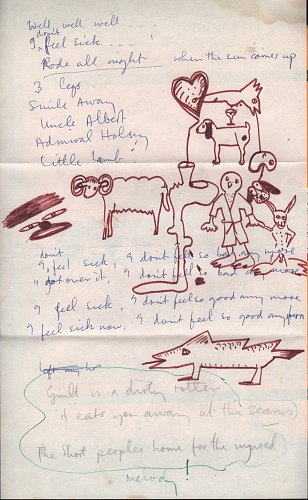 Well, well well
I don't feel sick....!
Rode all night when the sun comes up
3 legs.
Smile Away
Uncle Albert
Admiral Halsey
Little Lamb!
don't
I feel sick, I don't feel so bad any more
I got over it, I don't feel so bad any more
I feel sick. I don't feel so good any more
I feel sick now, I don't feel so good anymore
left my
Guilt is a dirty
it eats you away at the seams
The short peoples home for the injured
melody!